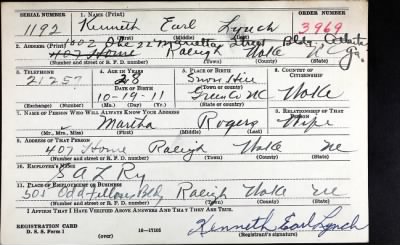 SERIAL NUMBER 1. NAME (Print) ORDER NUMBER
1192 Kenneth Earl Lynch 3969
(First) (Middle) (Last)
2. ADDRESS (Print)
407 Home Raleigh Wake N C
(Number and street or R. F. D. number) (Town) (County) (State)
3. TELEPHONE 4. AGE IN YEARS 5. PLACE OF BIRTH 6. COUNTRY OF CITIZENSHIP
21257 28 Snow Hill
DATE OF BIRTH
10-19-11 Greene NC Wake
(Exchange) (Number) (Mo.) (Day) (Yr.) (State or country)
7. NAME OF PERSON WHO WILL ALWAYS KNOW YOUR ADDRESS 8. RELATIONSHIP OF THAT PERSON
Martha Rogers Wife
(Mr., Mrs., Miss) (First) (Middle) (Last)
9. ADDRESS OF THAT PERSON
407 Home Raleigh Wake NC
(Number and street or R. F. D. number) (Town) (County) (State)
10. EMPLOYER'S NAME
S A L Ry
11. PLACE OF EMPLOYMENT OR BUSINESS
505 Oddfellows Bldg Raleigh Wake NC
(Number and street or R. F. D. number) (Town) (County) (State)
I AFFIRM THAT I HAVE VERIFIED ABOVE ANSWERS AND THAT THEY ARE TRUE.
REGISTRATION CARD
D. S. S. Form 1 16-17105 Kenneth Earl Lynch
(Registrant's signature)